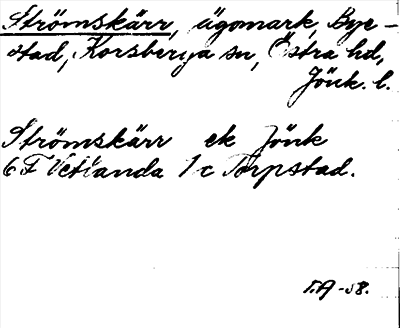 Strömskärr, ägomark, Bye-
stad, Korsberga sn, Östra hd,
Jönk. l.
Strömskärr ek Jönk
6F Vetlanda 1c Torpstad.
T.A -58.